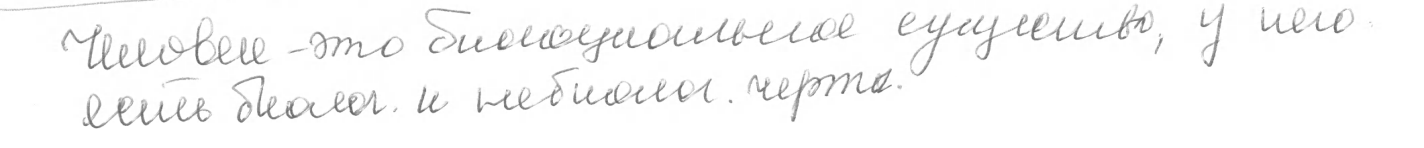 Человек - это биосоциальное существо, у него
есть биолог. и небиолог. черта.